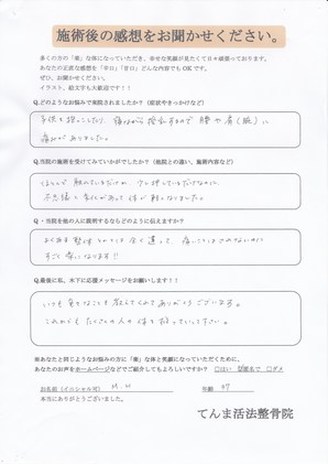 施術後の感想をお聞かせください。
多くの方の「楽」な体になっていただき、幸せな笑顔が見たくて日々頑張っております。
あなたの正直な感想を「辛口」「甘口」どんな内容でもOKです。
ぜひ、お聞かせください。
イラスト、絵文字も大歓迎です！！
Q.どのようなお悩みで来院されましたか？（症状やきっかけなど）
子供を抱っこしたり、
腰や肩(腕)に
痛みがありました。
Q.当院の施術を受けてみていかがでしたか？（他院との違い、施術内容など）
不思議と
体が軽くなりました。
Q・当院を他の人に説明するならどのように伝えますか？
よくある整体とかとは全く違って、痛いことはされないのに
すごく楽になります!!
Q.最後に私、木下に応援メッセージをお願いします！！
いつも色々なことを教えてくれてありがとうございます。
これからもたくさんの人の体を救って下さい。
※あなたと同じようなお悩みの方に「楽」な体と笑顔になっていただくために、
あなたのお声をホームページなどでご紹介してもよろしいですか？ □はい ☑匿名で □ダメ
お名前（イニシャル可） M.H 年齢 37
本当にありがとうございました。
てんま活法整骨院